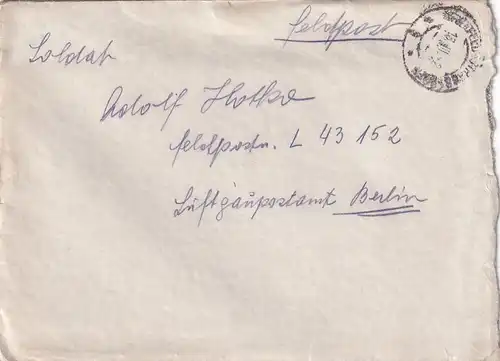 Feldpost
Soldat
Adolf Hotka
Feldpostn. L 43 152
Luftgaupostamt Berlin